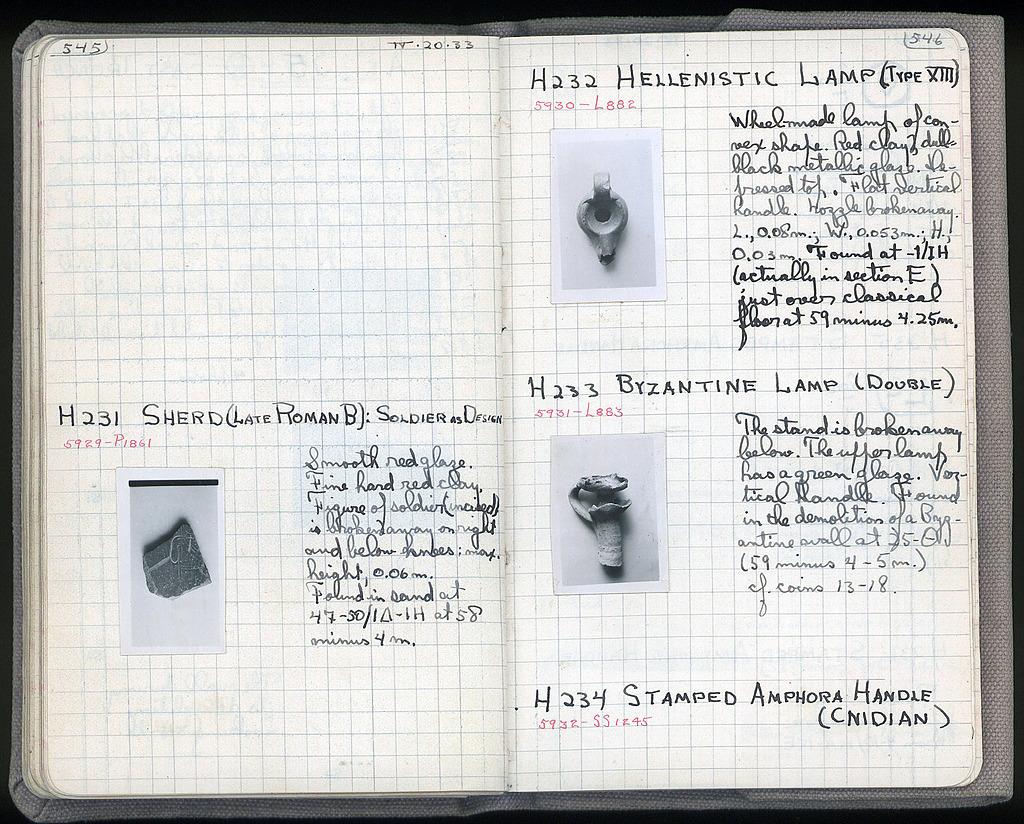 545
IV·20·33
H231 SHERD (LATE ROMAN B): SOLDIER AS DESIGN
5929-P1861
Smooth red glaze.
Fine hard red clay.
Figure of soldier (incised)
is broken away on right
and below knees; max.
height, 0.06m.
Found in sand at
47-50/ΙΔ-ΙΗ at 58
minus 4 m.
546
H232 HELLENISTIC LAMP (TYPE XIII)
5930-L882
Wheel-made lamp of con-
vex shape. Red clay; dull-
black metallic glaze. De-
pressed top. Flat vertical
handle. Nozzle broken away.
L., 0.08m.; W., 0.053m.; H.,
0.03m. Found at -1/ΙΗ
(actually in section E)
just over classical
floor at 59 minus 4.25m.
H233 BYZANTINE LAMP (DOUBLE)
5931-L883
The stand is broken away
below. The upper lamp
has a green glaze. Ver-
tical handle. Found
in the demolition of a Byz-
antine wall at
(59 minus 4-5m.)
cf. coins 13-18.
H234 STAMPED AMPHORA HANDLE
(CNIDIAN)
5932-SS1245